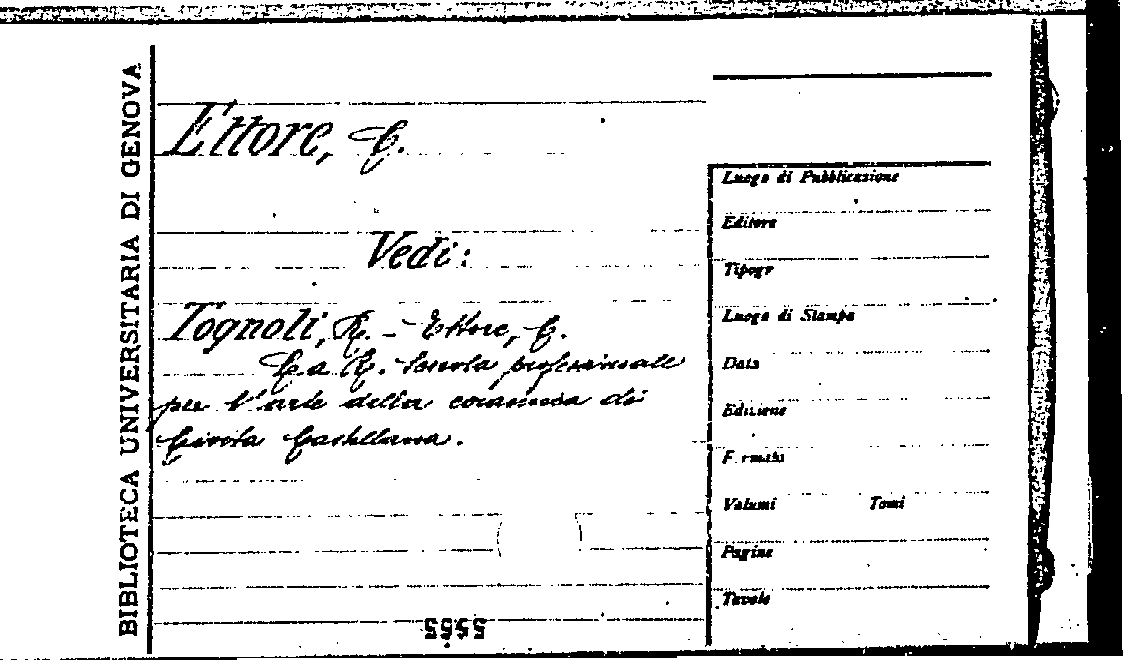 BIBLIOTECA UNIVERSITARIA DI GENOVA
Ettore, G.
Vedi:
Tognoli, R. - Ettore, G.
La R. Scuola professionale
per l'arte della ceramica di
Civita Castellana.
Luogo di Pubblicazione
Editore
Tipogr
Luogo di Stampa
Data
Edizione
Formato
Volumi Tomi
Pagine
Tavole
5555